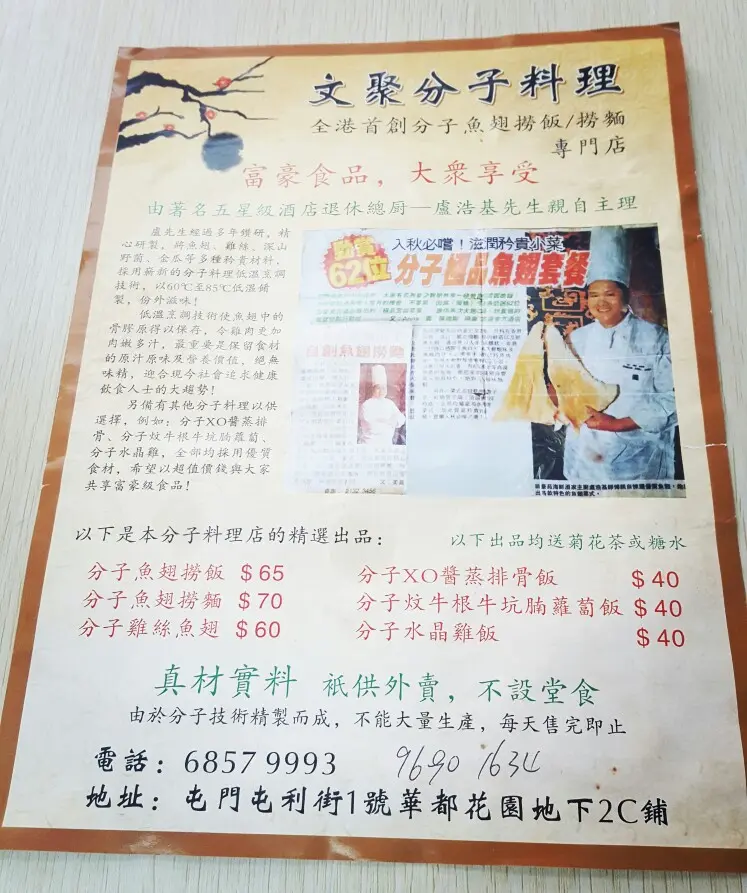 文聚分子料理
全港首創分子魚翅撈飯/撈麵
專門店
富豪食品，大衆享受
由著名五星級酒店退休總厨—盧浩基先生親自主理
盧先生經過多年鑽研，精
心研製，將魚翅、雞絲、深山
野菌、金瓜等多種矜貴材料，
採用嶄新的分子料理低溫烹調
技術，以60℃至85℃低溫銷
製，份外滋味！
低溫烹調技術後魚翅中的
骨膠原得以保存，令雞肉更加
肉嫩多汁，最重要是保留食材
的原汁原味及營養價值，絕無
味精，迎合現今社會追求健康
飲食人士的大趨勢！
另備有其他分子料理以供
選擇，例如：分子XO醬蒸排
骨、分子炆牛根牛坑腩蘿蔔、
分子水晶雞，全部均採用優質
食材，希望以超值價錢與大家
共享富豪級食品！
入秋必嚐！滋潤矜貴小菜
勁賞
62位
分子極品魚翅套餐
以下是本分子料理店的精選出品：
以下出品均送菊花茶或糖水
分子魚翅撈飯 $65
分子魚翅撈麵 $70
分子雞絲魚翅 $60
分子XO醬蒸排骨飯 $40
分子炆牛根牛坑腩蘿蔔飯 $40
分子水晶雞飯 $40
真材實料 祇供外賣，不設堂食
由於分子技術精製而成，不能大量生產，每天售完即止
電話：6857 9993 9690 1634
地址：屯門屯利街1號華都花園地下2C鋪